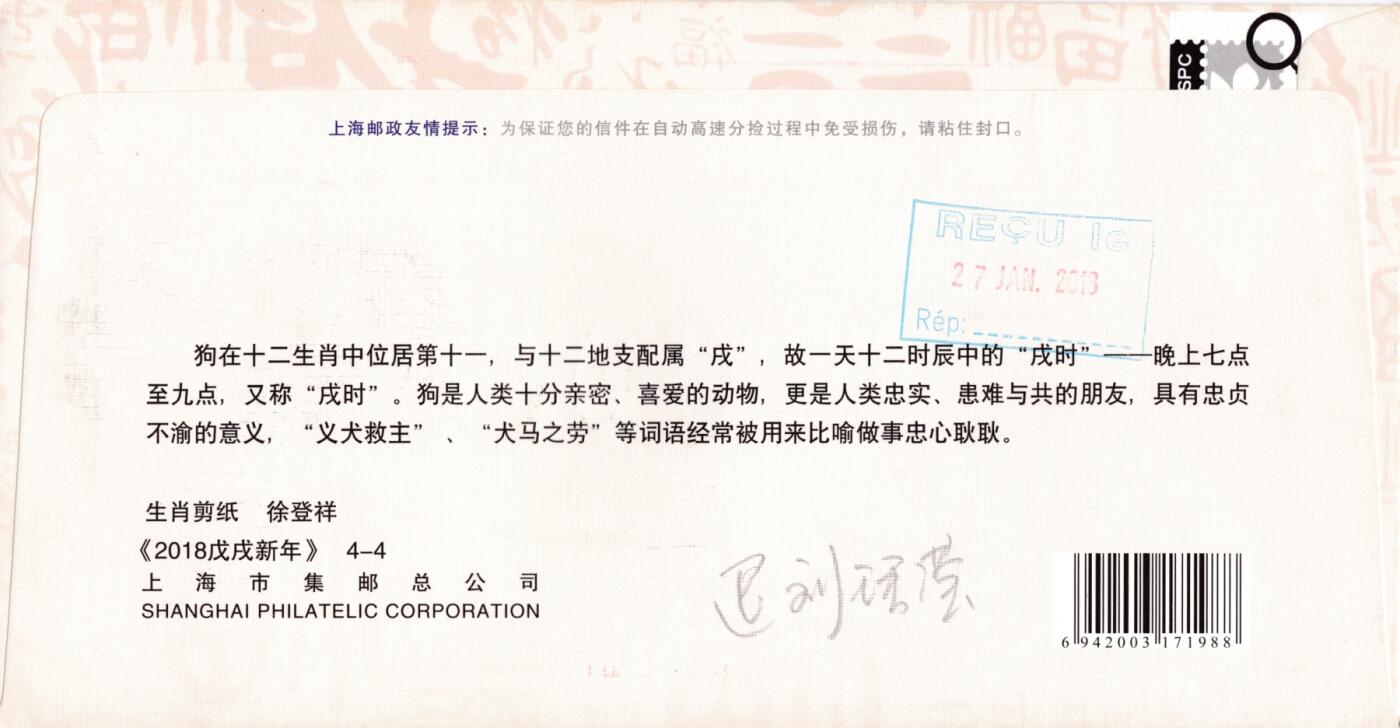 SPC
上海邮政友情提示：为保证您的信件在自动高速分捡过程中免受损伤，请粘住封口。
REÇU le
27 JAN. 2018
Rép:
狗在十二生肖中位居第十一，与十二地支配属“戌”，故一天十二时辰中的“戌时”——晚上七点
至九点，又称“戌时”。狗是人类十分亲密、喜爱的动物，更是人类忠实、患难与共的朋友，具有忠贞
不渝的意义，“义犬救主”、“犬马之劳”等词语经常被用来比喻做事忠心耿耿。
生肖剪纸 徐登祥
《2018戊戌新年》 4-4
上海市集邮总公司
SHANGHAI PHILATELIC CORPORATION
退刘
6 942003 171988